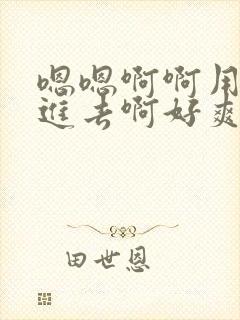 嗯嗯啊啊用
进去啊好爽
田世恩